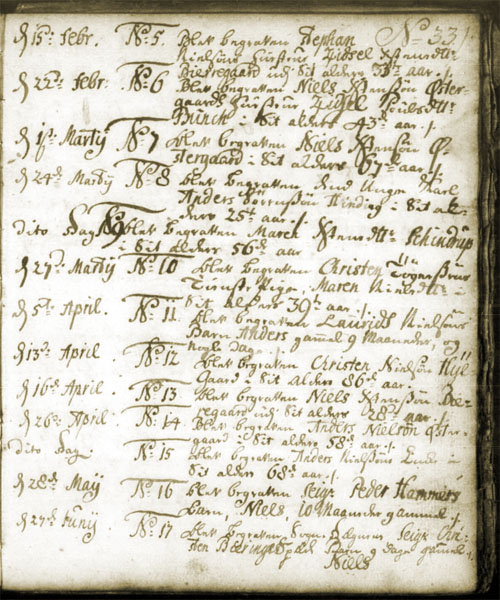 No 331.
d 15de Febr. No 5. blev begraven Stephan
Nielsøns Hustrue Zidsel
Bierregaard udj Sit alders aar.
d 22de Febr. No 6 blev begraven Niels Øster-
gaards Hustrue Zidsel Poulsdtr
Munck i Sit alders 43de aar.
d 1ste Martij No 7 blev begraven Niels Ø-
stergaard i Sit alders 67de aar
d 24de Martij No 8 blev begraven Unge Karl
Anders Sørensøn Hinding i Sit al-
ders 25de aar
dito Dag No 9 blev begraven Maren Schindrup
i Sit alders 56de aar
d 27de Martij No 10 blev begraven Christen
Tieneste Pige, Maren Nielsdtr i
Sit alders 39te aar.
d 5te April. No 11. blev begraven Laurids Nielsøns
Barn Anders gamel 9 Maaneder, og
nogle Dage.
d 13de April No 12 blev begraven Christen Nielsøn Hyl-
gaard i Sit Alders 86de aar.
d 16de April No 13 blev begraven Niels Bier-
regaard udj Sit alders 28de aar
d 26de April No 14 blev begraven Anders Nielsøn Øster-
gaard i Sit alders 58de aar
dito Dag No 15 blev begraven Anders Nielsøns Encke i
Sit alders 68de aar.
d 28de Maij No 16 blev begraven Seigr Peder Hammers
barn, Niels, 10 Maaneder gammel
d 27de Junij No 17 blev begraven Sogne Degnens Seigr
Bæringes Barn, 9 Dage gamel
Niels